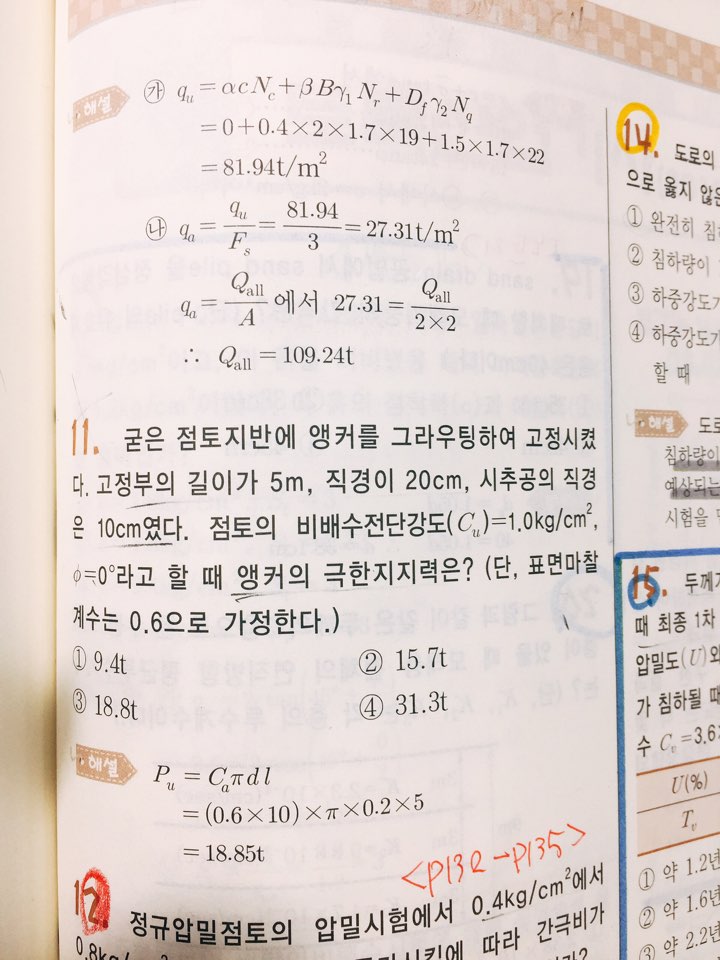 해설
㉮ q_u = αcN_c + βBγ₁N_r + D_fγ₂N_q
= 0+0.4×2×1.7×19+1.5×1.7×22
= 81.94t/m²
㉯ q_a = q_u/F_s = 81.94/3 = 27.31t/m²
q_a = Q_all/A 에서 27.31 = Q_all/2×2
∴ Q_all = 109.24t
11. 굳은 점토지반에 앵커를 그라우팅하여 고정시켰
다. 고정부의 길이가 5m, 직경이 20cm, 시추공의 직경
은 10cm였다. 점토의 비배수전단강도(C_u)=1.0kg/cm²,
ϕ=0°라고 할 때 앵커의 극한지지력은? (단, 표면마찰
계수는 0.6으로 가정한다.)
① 9.4t ② 15.7t
③ 18.8t ④ 31.3t
해설
P_u = C_aπdl
= (0.6×10)×π×0.2×5
= 18.85t
<p132→p135>
12. 정규압밀점토의 압밀시험에서 0.4kg/cm²에서
0.8kg/ 따라 간극비가
14. 도로의
으로 옳지 않은
① 완전히 침
② 침하량이
③ 하중강도가
④ 하중강도가
할 때
해설 도로
침하량이
예상되는
시험을
15. 두께가
때 최종 1차
압밀도(U)와
가 침하될 때
수 C_v=3.6×
U(%)
T_v
① 약 1.2년
② 약 1.6년
③ 약 2.2년